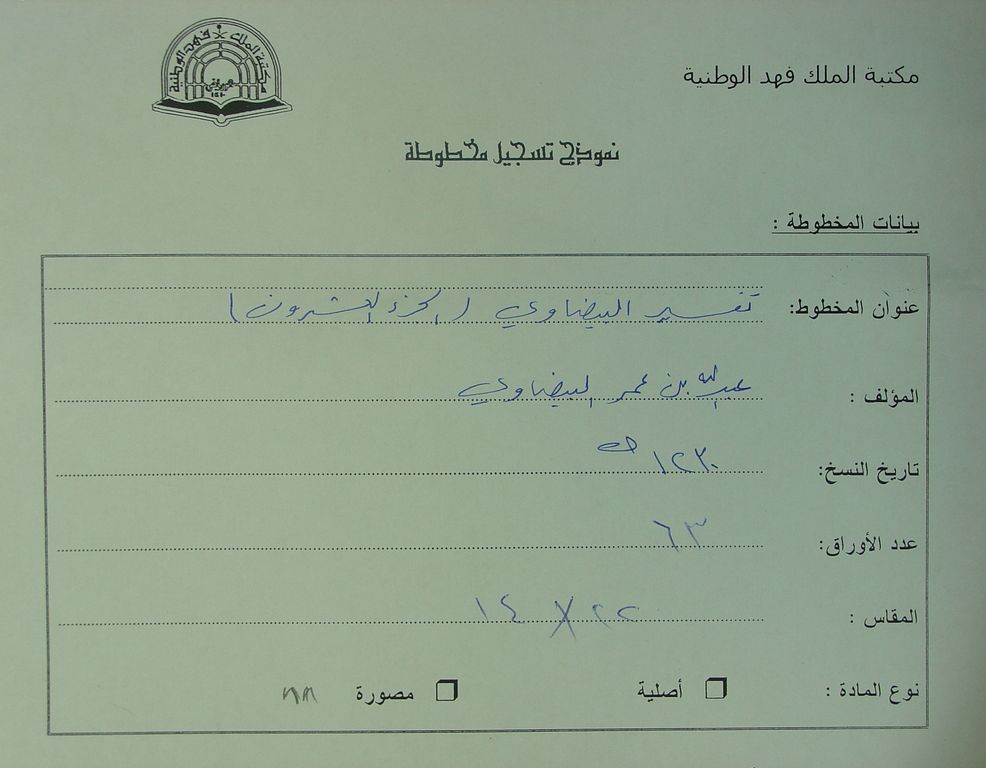 مكتبة الملك فهد الوطنية
مكتبة الملك فهد الوطنية
نموذج تسجيل مخطوطة
بيانات المخطوطة :
عنوان المخطوط: تفسير البيضاوي (الجزء العشرون)
المؤلف : عبدالله بن عمر البيضاوي
تاريخ النسخ: ١٢٣٠ هـ
عدد الأوراق: ٦٣
المقاس : ٢٢ X ١٤
نوع المادة : أصلية مصورة